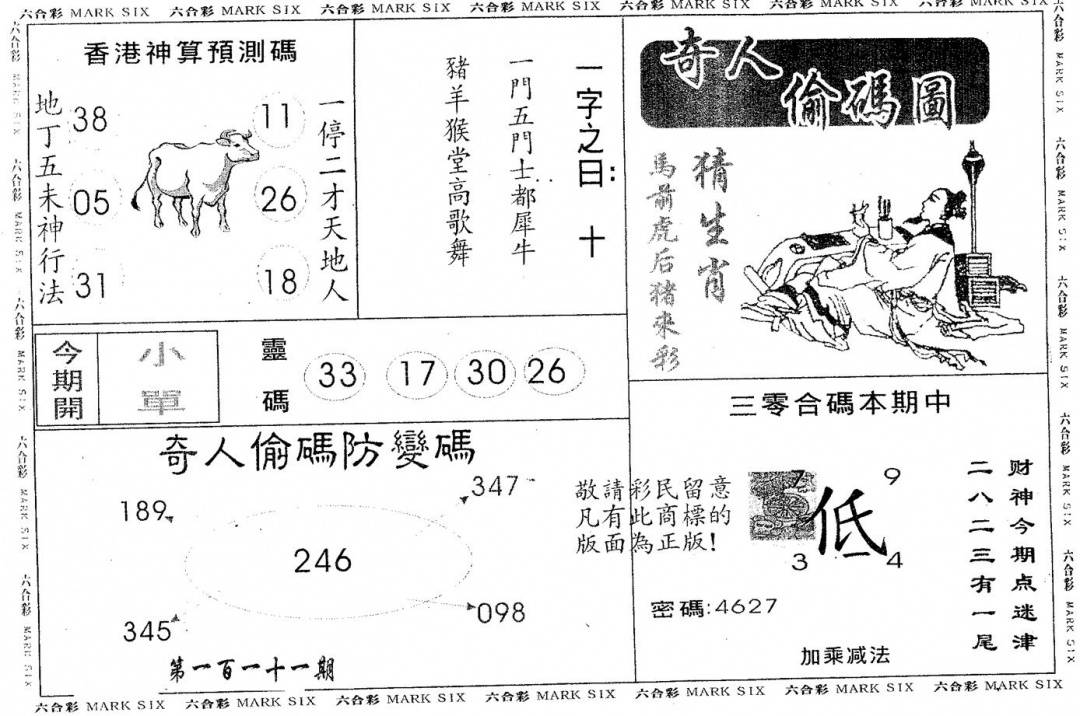 六合彩 MARK SIX 六合彩 MARK SIX 六合彩 MARK SIX 六合彩 MARK SIX 六合彩 MARK SIX 六合彩 MARK SIX 六合彩 MARK SIX
香港神算預測碼
地丁五未神行法
38
05
31
11
26
18
一停二才天地人
一字之曰: 十
一門五門士都犀牛
豬羊猴堂高歌舞
奇人偷碼圖
猜生肖
馬前虎后猪來彩
今期開
小單
靈碼
33 17 30 26
奇人偷碼防變碼
189
347
246
345
098
第一百一十一期
敬請彩民留意
凡有此商標的
版面為正版!
三零合碼本期中
7
9
低
3
4
密碼:4627
加乘减法
财神今期点迷津
二八二三有一尾
六合彩 MARK SIX 六合彩 MARK SIX 六合彩 MARK SIX 六合彩 MARK SIX 六合彩 MARK SIX 六合彩 MARK SIX 六合彩 MARK SIX